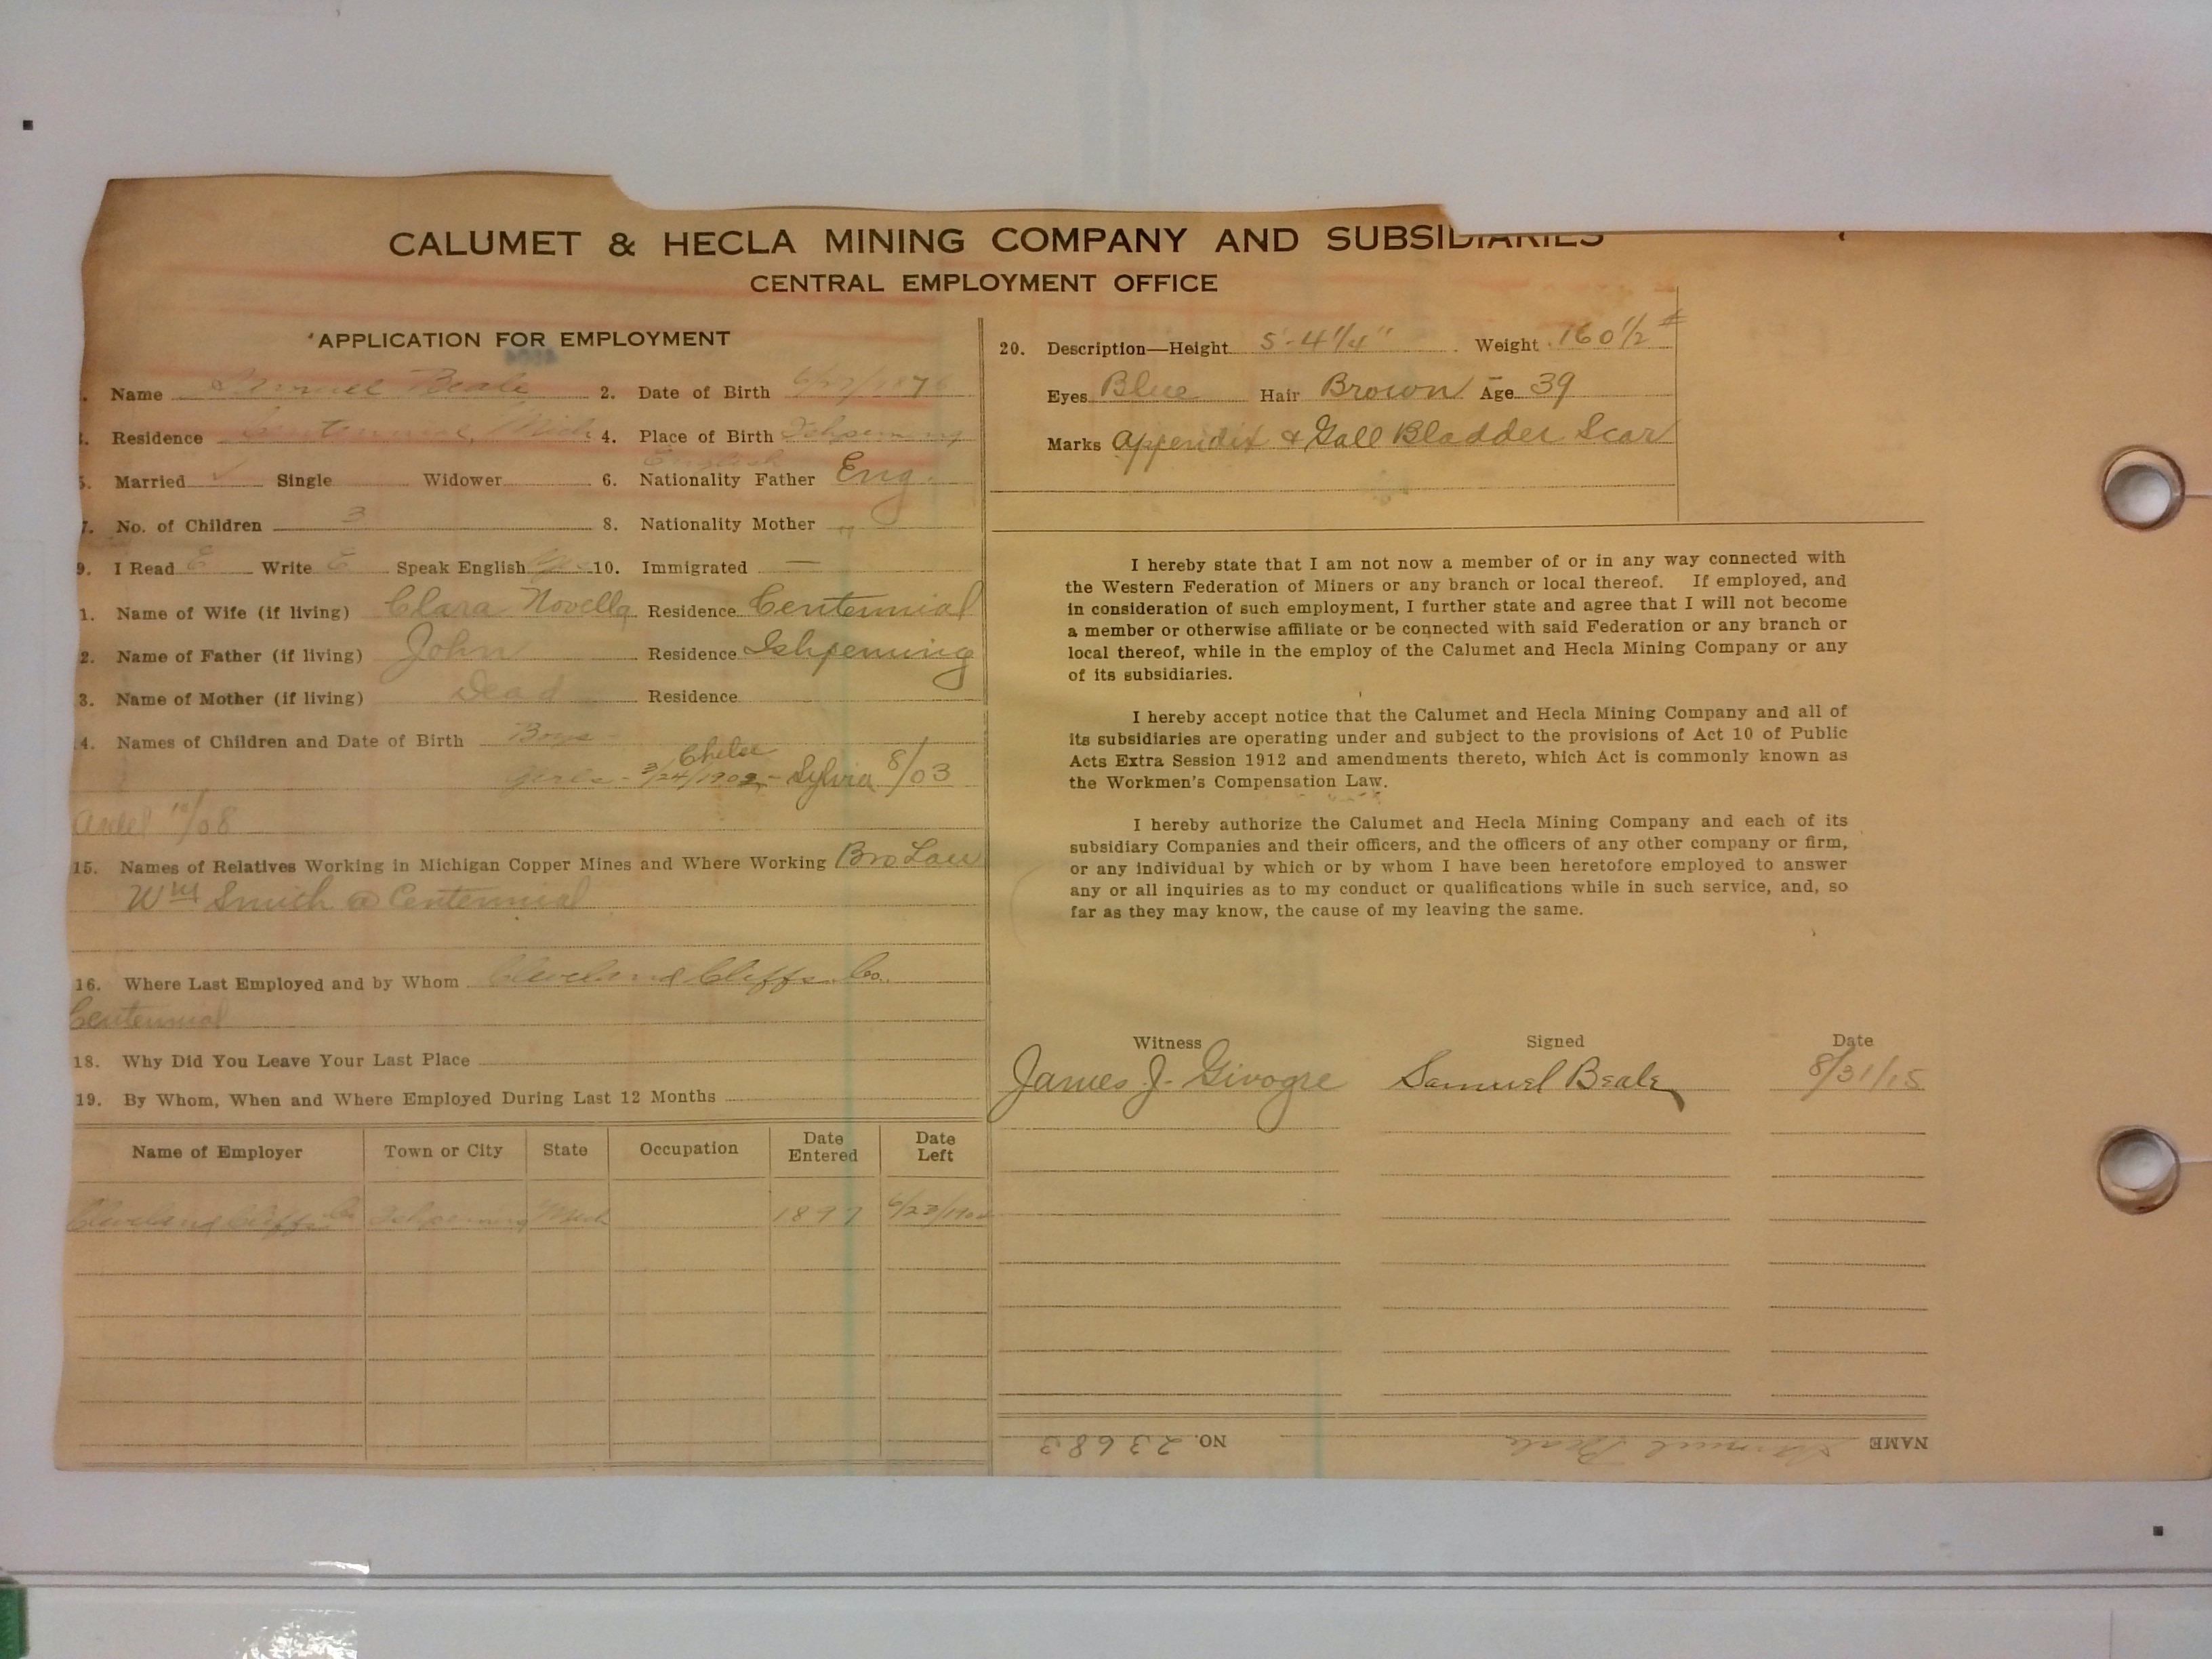 CALUMET & HECLA MINING COMPANY AND SUBSIDIARIES
CENTRAL EMPLOYMENT OFFICE
APPLICATION FOR EMPLOYMENT
Name Samuel Beale 2. Date of Birth 6/27/1876
Residence Centennial, Mich 4. Place of Birth Ishpeming
English
5. Married ✓ Single Widower 6. Nationality Father Eng.
7. No. of Children 3 8. Nationality Mother "
9. I Read E Write E Speak English 10. Immigrated —
1. Name of Wife (if living) Clara Novella Residence Centennial
2. Name of Father (if living) John Residence Ishpeming
3. Name of Mother (if living) Dead Residence
4. Names of Children and Date of Birth Boys -
Girls - 3/24/1902 - Sylvia 8/03
10/08
15. Names of Relatives Working in Michigan Copper Mines and Where Working Bro Law
Wm Smith @ Centennial
16. Where Last Employed and by Whom Cleveland Cliffs Co.
Centennial
18. Why Did You Leave Your Last Place
19. By Whom, When and Where Employed During Last 12 Months
Name of Employer Town or City State Occupation Date Entered Date Left
Cleveland Cliffs Co Ishpeming Mich 1897 6/23/190
20. Description—Height 5'-4 1/4" Weight 160 1/2 #
Eyes Blue Hair Brown Age 39
Marks Appendix & Gall Bladder Scar
I hereby state that I am not now a member of or in any way connected with
the Western Federation of Miners or any branch or local thereof. If employed, and
in consideration of such employment, I further state and agree that I will not become
a member or otherwise affiliate or be connected with said Federation or any branch or
local thereof, while in the employ of the Calumet and Hecla Mining Company or any
of its subsidiaries.
I hereby accept notice that the Calumet and Hecla Mining Company and all of
its subsidiaries are operating under and subject to the provisions of Act 10 of Public
Acts Extra Session 1912 and amendments thereto, which Act is commonly known as
the Workmen's Compensation Law.
I hereby authorize the Calumet and Hecla Mining Company and each of its
subsidiary Companies and their officers, and the officers of any other company or firm,
or any individual by which or by whom I have been heretofore employed to answer
any or all inquiries as to my conduct or qualifications while in such service, and, so
far as they may know, the cause of my leaving the same.
Witness Signed Date
James J. Givogre Samuel Beale 8/31/15
NAME Samuel Beale NO. 23683